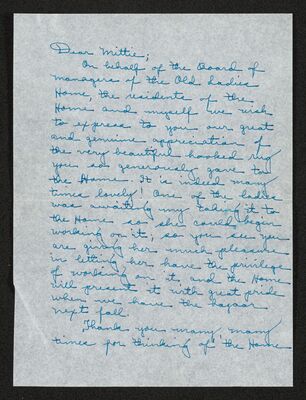 Dear Mittie;
On behalf of the Board of
Managers of the Old Ladies
Home, the residents of the
Home and myself we wish
to express to you our great
and genuine appreciation of
the very beautiful hooked rug
you so generously gave to
the Home. It is indeed many
times lovely! One of the ladies
was awaiting my taking it to
the Home so she could begin
working on it, so you see you
are giving her much pleasure
in letting her have the privilege
of working on it, and the Home
will present it with great pride
when we have the bazaar
next fall.
Thank you many, many
times for thinking of the Home